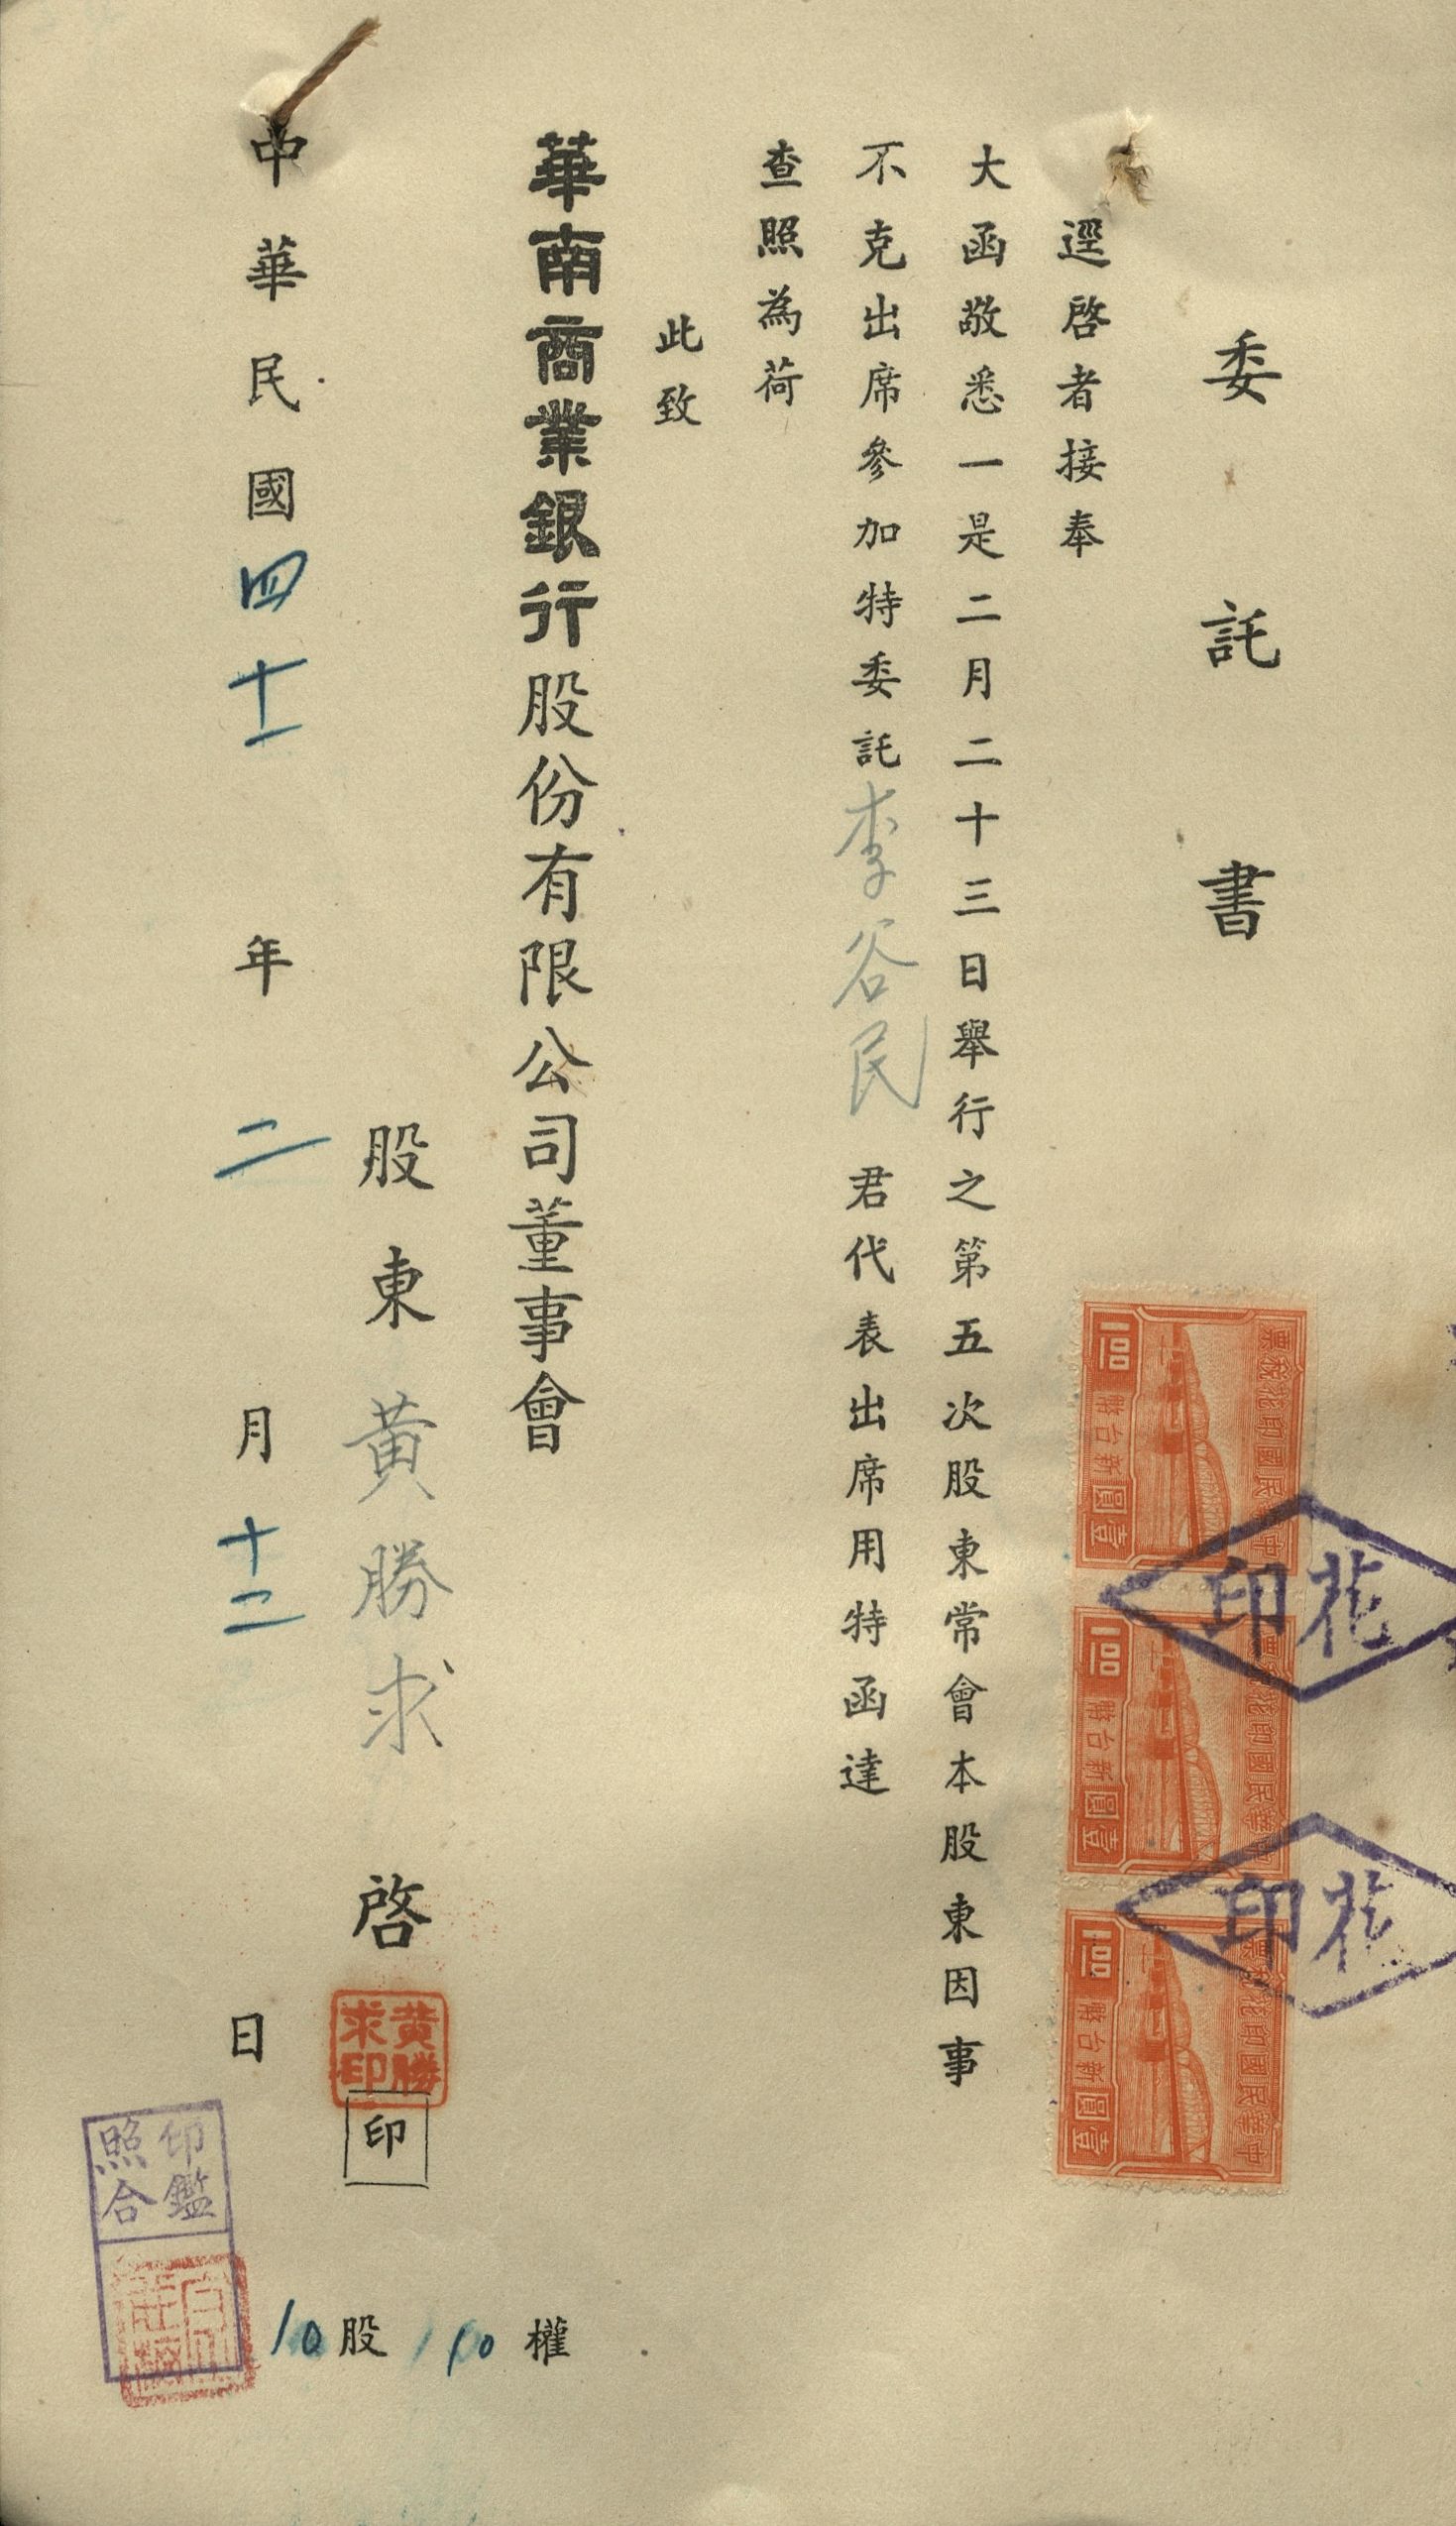 委託書
逕啓者接奉
大函敬悉一是二月二十三日舉行之第五次股東常會本股東因事
不克出席參加特委託李谷民君代表出席用特函達
查照為荷
此致
華南商業銀行股份有限公司董事會
股東黃勝求啓
黃勝求印
印
中華民國四十一年二月十二日
權10股10
印鑑
照合
中華民國印花稅票
1.00
新台幣
壹圓
中華民國印花稅票
1.00
新台幣
壹圓
中華民國印花稅票
1.00
新台幣
壹圓
花印
花印